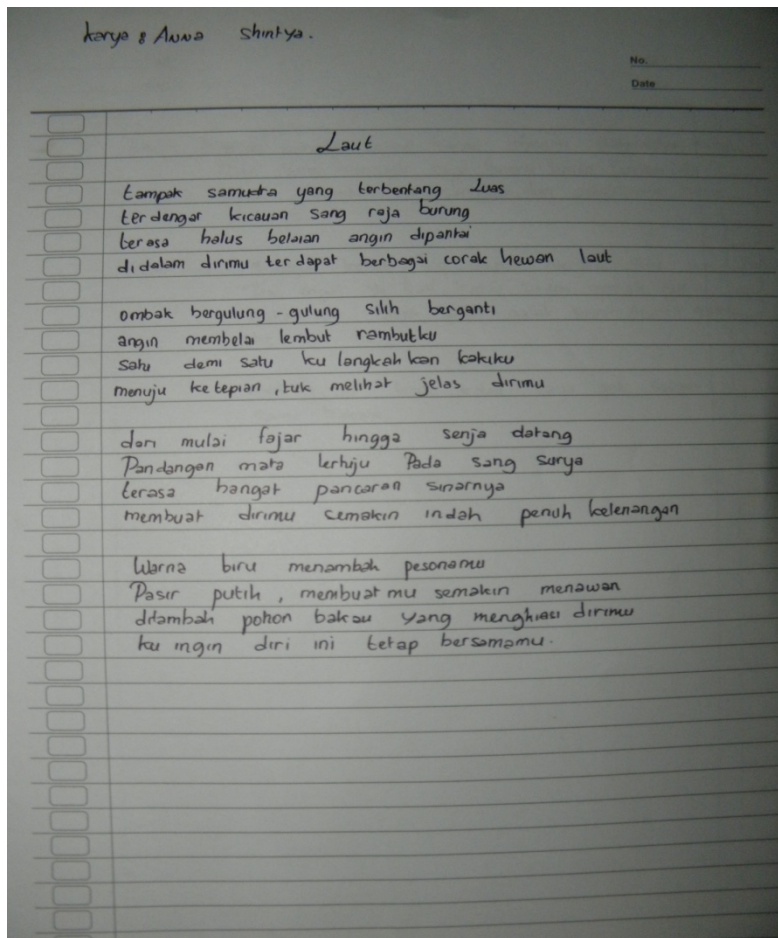 karya : Anna Shintya.
No.
Date
Laut
tampak samudra yang terbentang Luas
terdengar kicauan sang raja burung
terasa halus belaian angin dipantai
didalam dirimu terdapat berbagai corak hewan laut
ombak bergulung - gulung silih berganti
angin membelai lembut rambutku
satu demi satu ku langkah kan kakiku
menuju ketepian , tuk melihat jelas dirimu
dari mulai fajar hingga senja datang
Pandangan mata tertuju Pada sang surya
terasa hangat pancaran sinarnya
membuat dirimu semakin indah penuh ketenangan
Warna biru menambah pesonamu
Pasir putih , membuat mu semakin menawan
ditambah pohon bakau yang menghiasi dirimu
ku ingin diri ini tetap bersamamu.